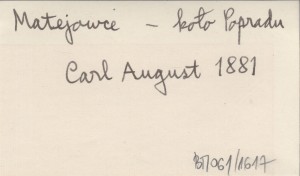 Matejowce - koło Popradu
Carl August 1881
BT/061/1617